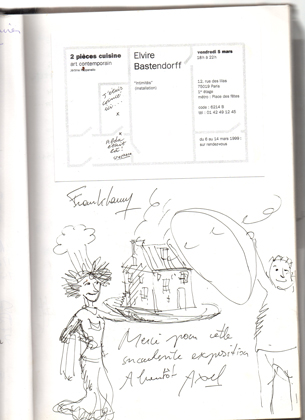 2 pièces cuisine
art contemporain
Elvire
Bastendorff
"Intimités"
(installation)
vendredi 5 mars
18H à 22H
13, rue des lilas
75019 Paris
1er étage
métro : Place des fêtes
code : 6214 B
Tel : 01 42 49 12 45
du 6 au 14 mars 1999 :
sur rendez-vous
Merci pour cette
succulente exposition
A bientôt! Axel